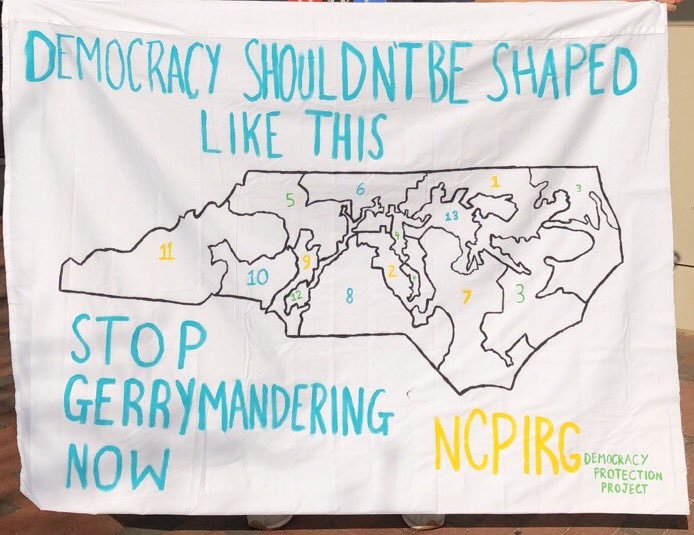 DEMOCRACY SHOULDN'T BE SHAPED
LIKE THIS
5
6
1
3
13
4
11
10
9
2
4
12
8
7
3
STOP
GERRYMANDERING
NOW
NCPIRG
DEMOCRACY
PROTECTION
PROJECT